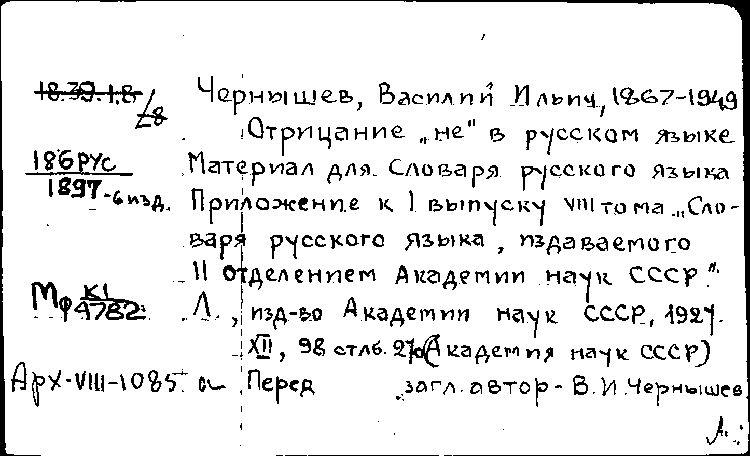 18.39.1.8 Чернышев, Василий Ильич, 1867-1949
Отрицание „не" в русском языке
186РУС Материал для Словаря русского языка
1897-6изд. Приложение к 1 выпуску VIII тома „Сло-
варя русского языка, издаваемого
II отделением Академии наук СССР".
Мф К1/4782 Л., изд-во Академии наук СССР, 1927.
XII, 98 стлб. (Академия наук СССР)
Арх-VIII-1085 Перед загл. автор - В.И.Чернышев